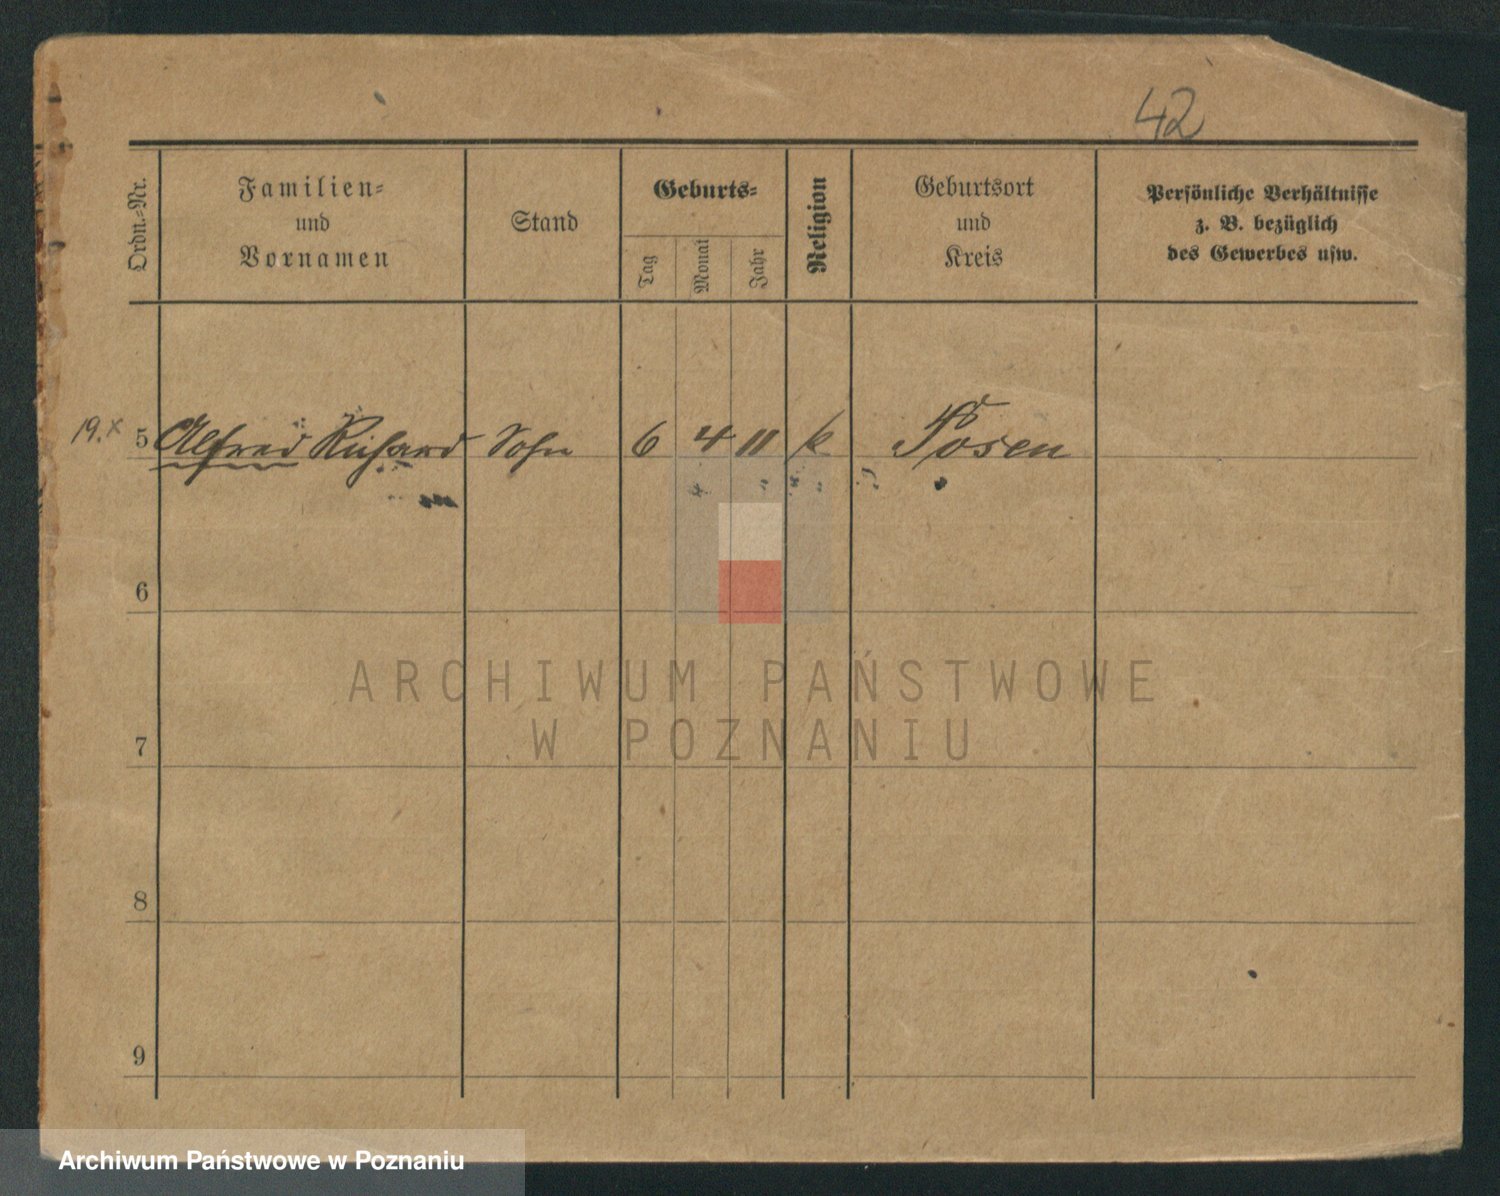 42
Ordn.-Nr.
Familien-
und
Vornamen
Stand
Geburts-
Tag
Monat
Jahr
Religion
Geburtsort
und
Kreis
Persönliche Verhältnisse
z. B. bezüglich
des Gewerbes usw.
19. x 5 Alfred Richard Sohn 6 4 11 k Posen
6
ARCHIWUM PAŃSTWOWE
W POZNANIU
7
8
9
Archiwum Państwowe w Poznaniu